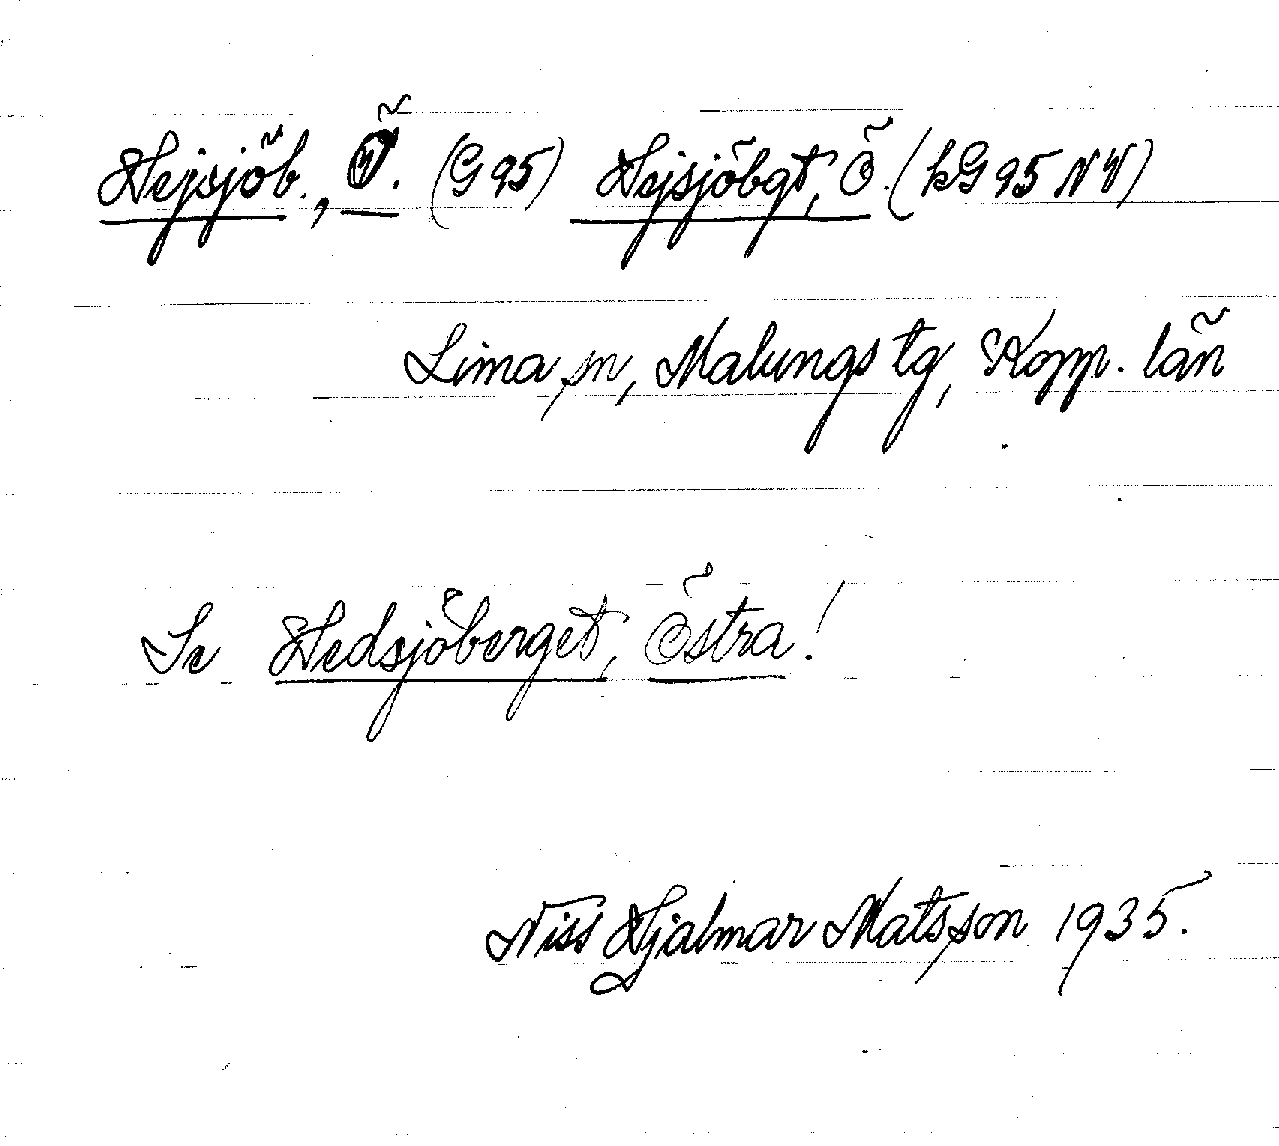 Hejsjöb., Ö. (G 95) Hejsjöbgt, Ö. (kG 95 NV)
Lima sn, Malungs tg, Kopp. län
Se Hedsjöberget, Östra!
Niss Hjalmar Matsson 1935.